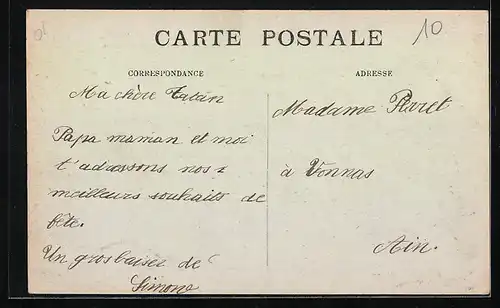 10
CARTE POSTALE
CORRESPONDANCE
ADRESSE
Ma chère Tatan
Papa maman et moi
t'adressons nos
meilleurs souhaits de
fête.
Un gros baiser de
Simone
Madame Perret
à Vonnas
Ain.